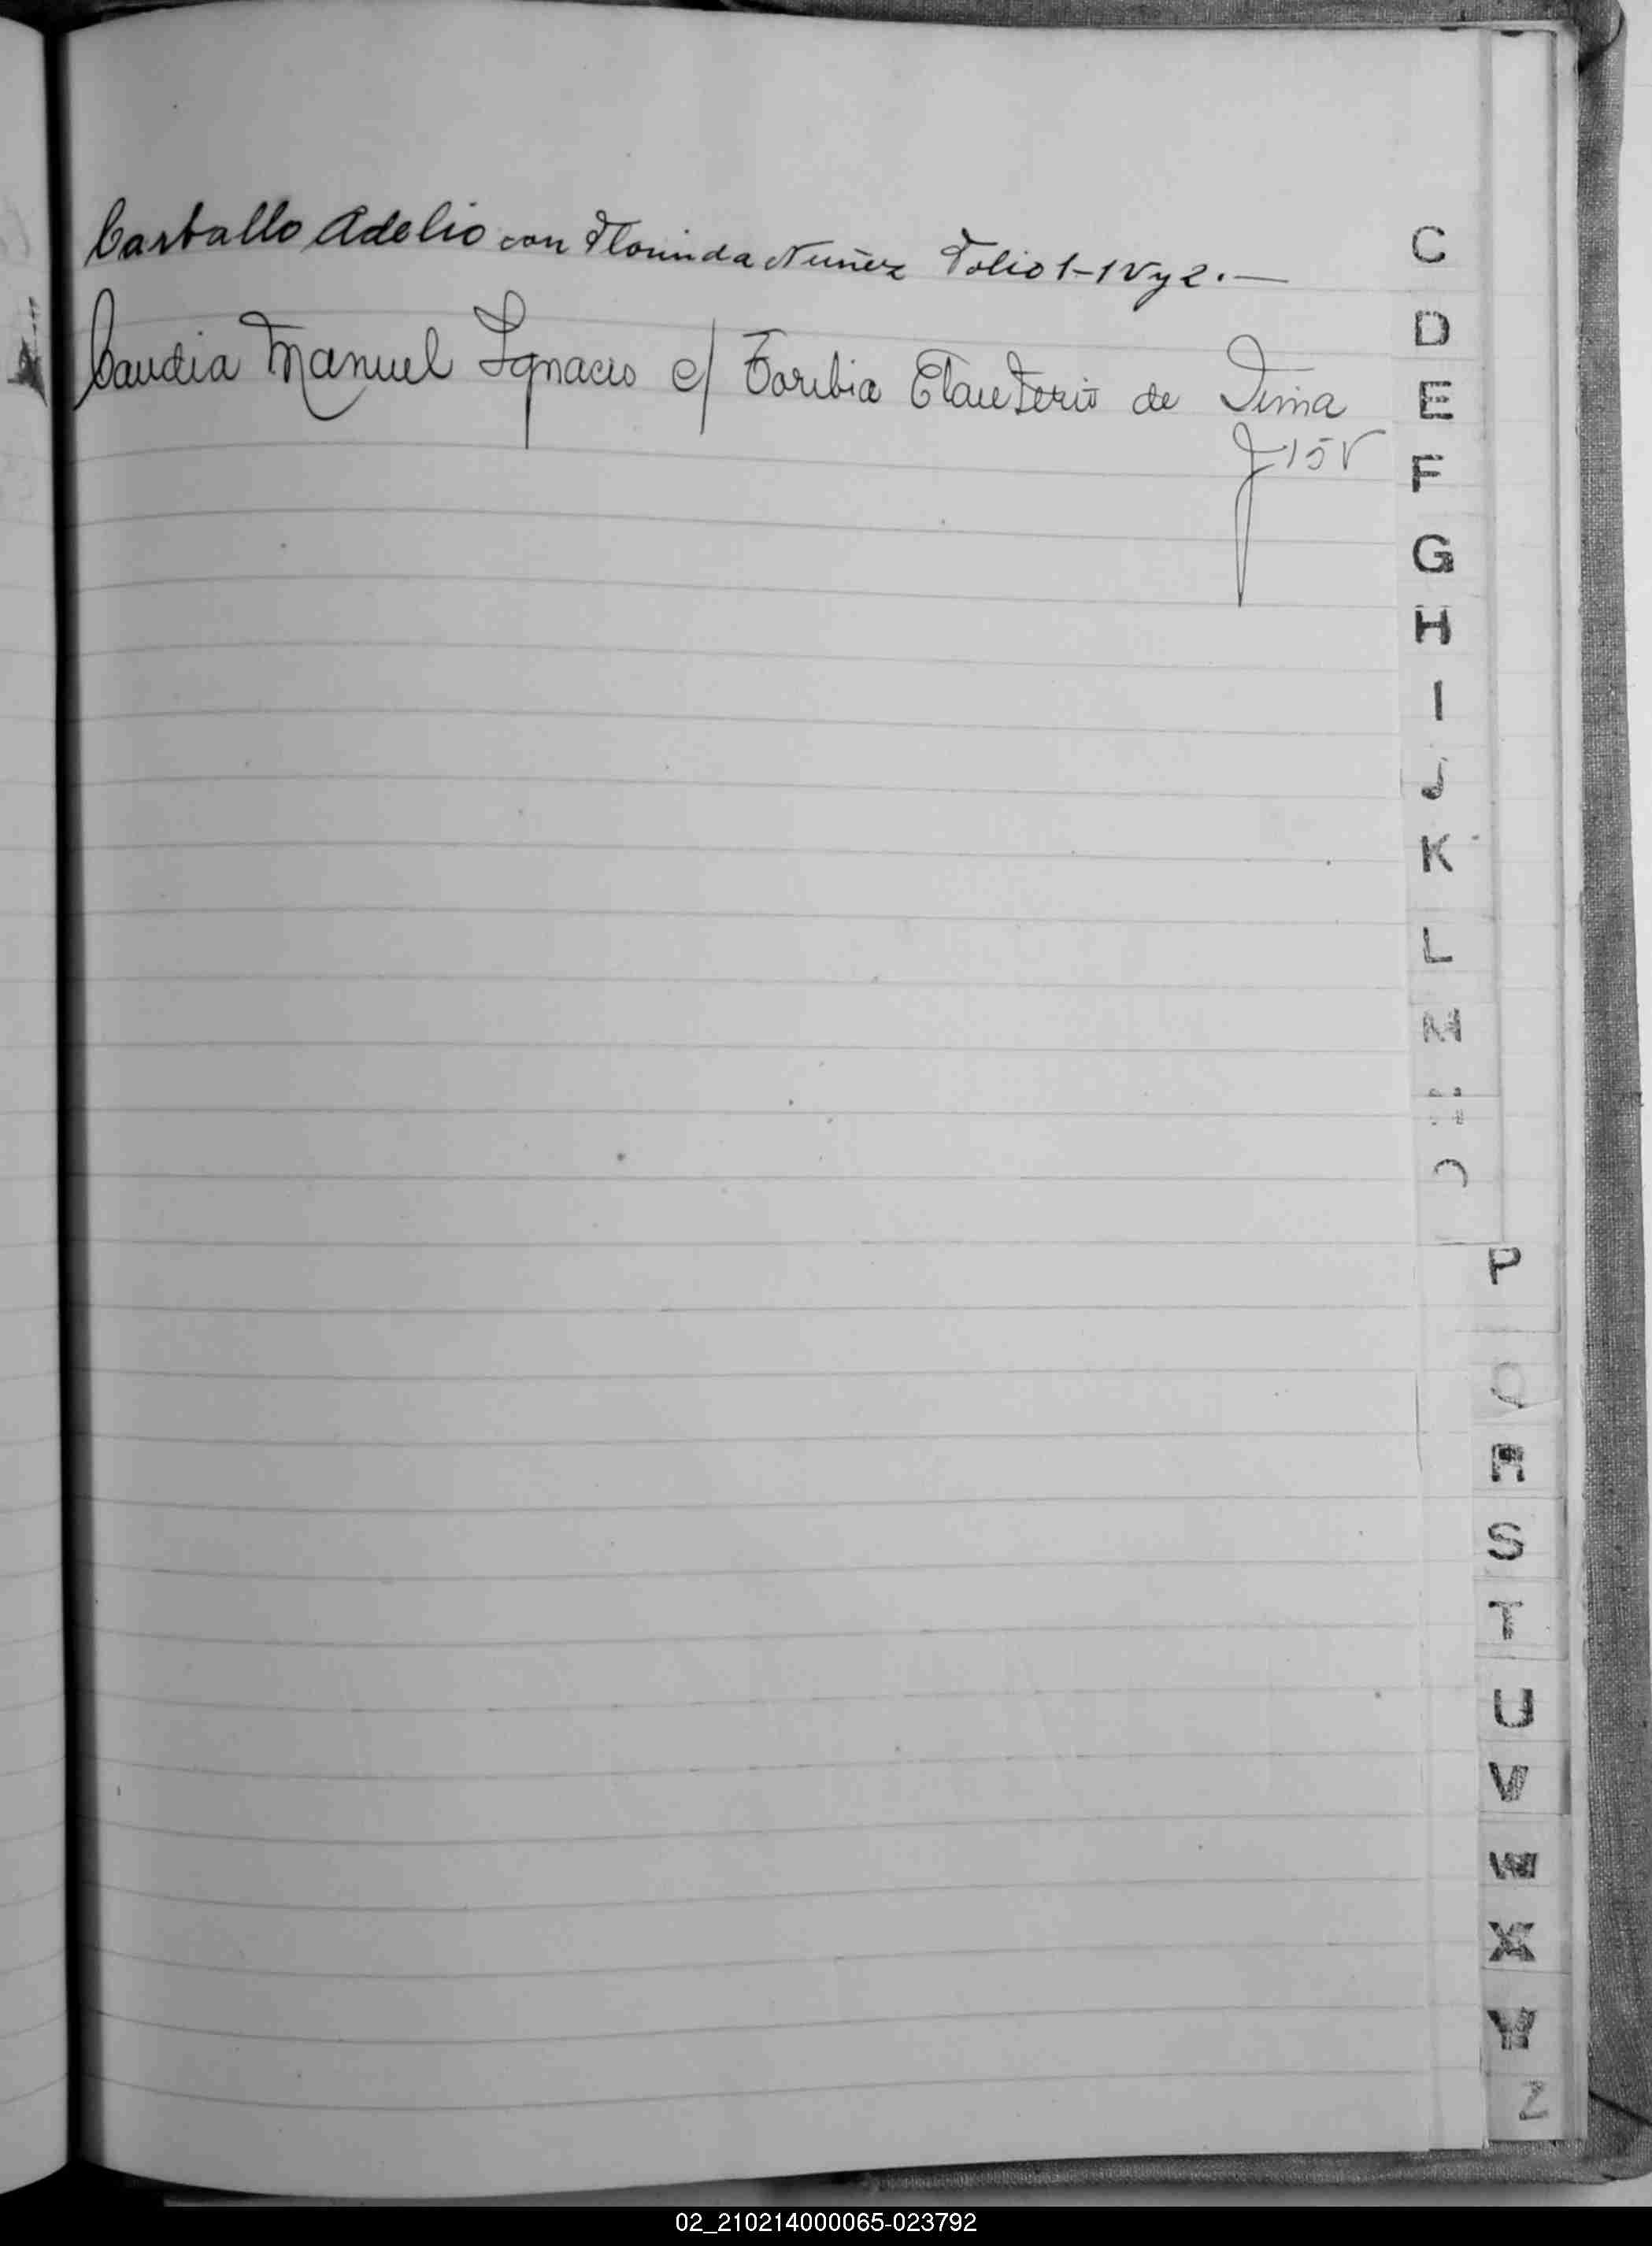 Carballo Adelio con Florinda Nuñez Folio 1-1Vy2.—
Candia Manuel Ignacio c/ Toribia Elauterio de Lima
f 15V
C
D
E
F
G
H
I
J
K
L
M
P
Q
R
S
T
U
V
W
X
Y
Z
02_210214000065-023792